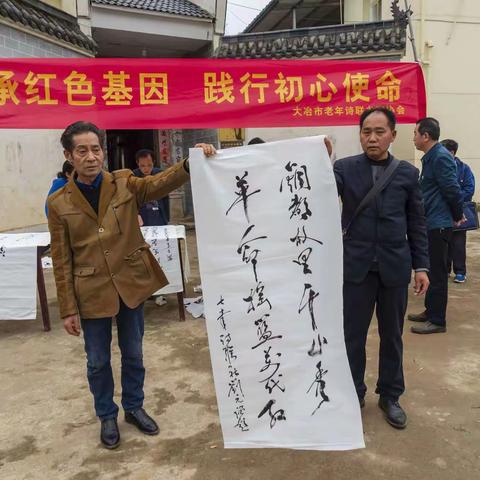 承红色基因 践行初心使命
大冶市老年诗联 协会
铜都故里千山秀
革命摇篮万代红